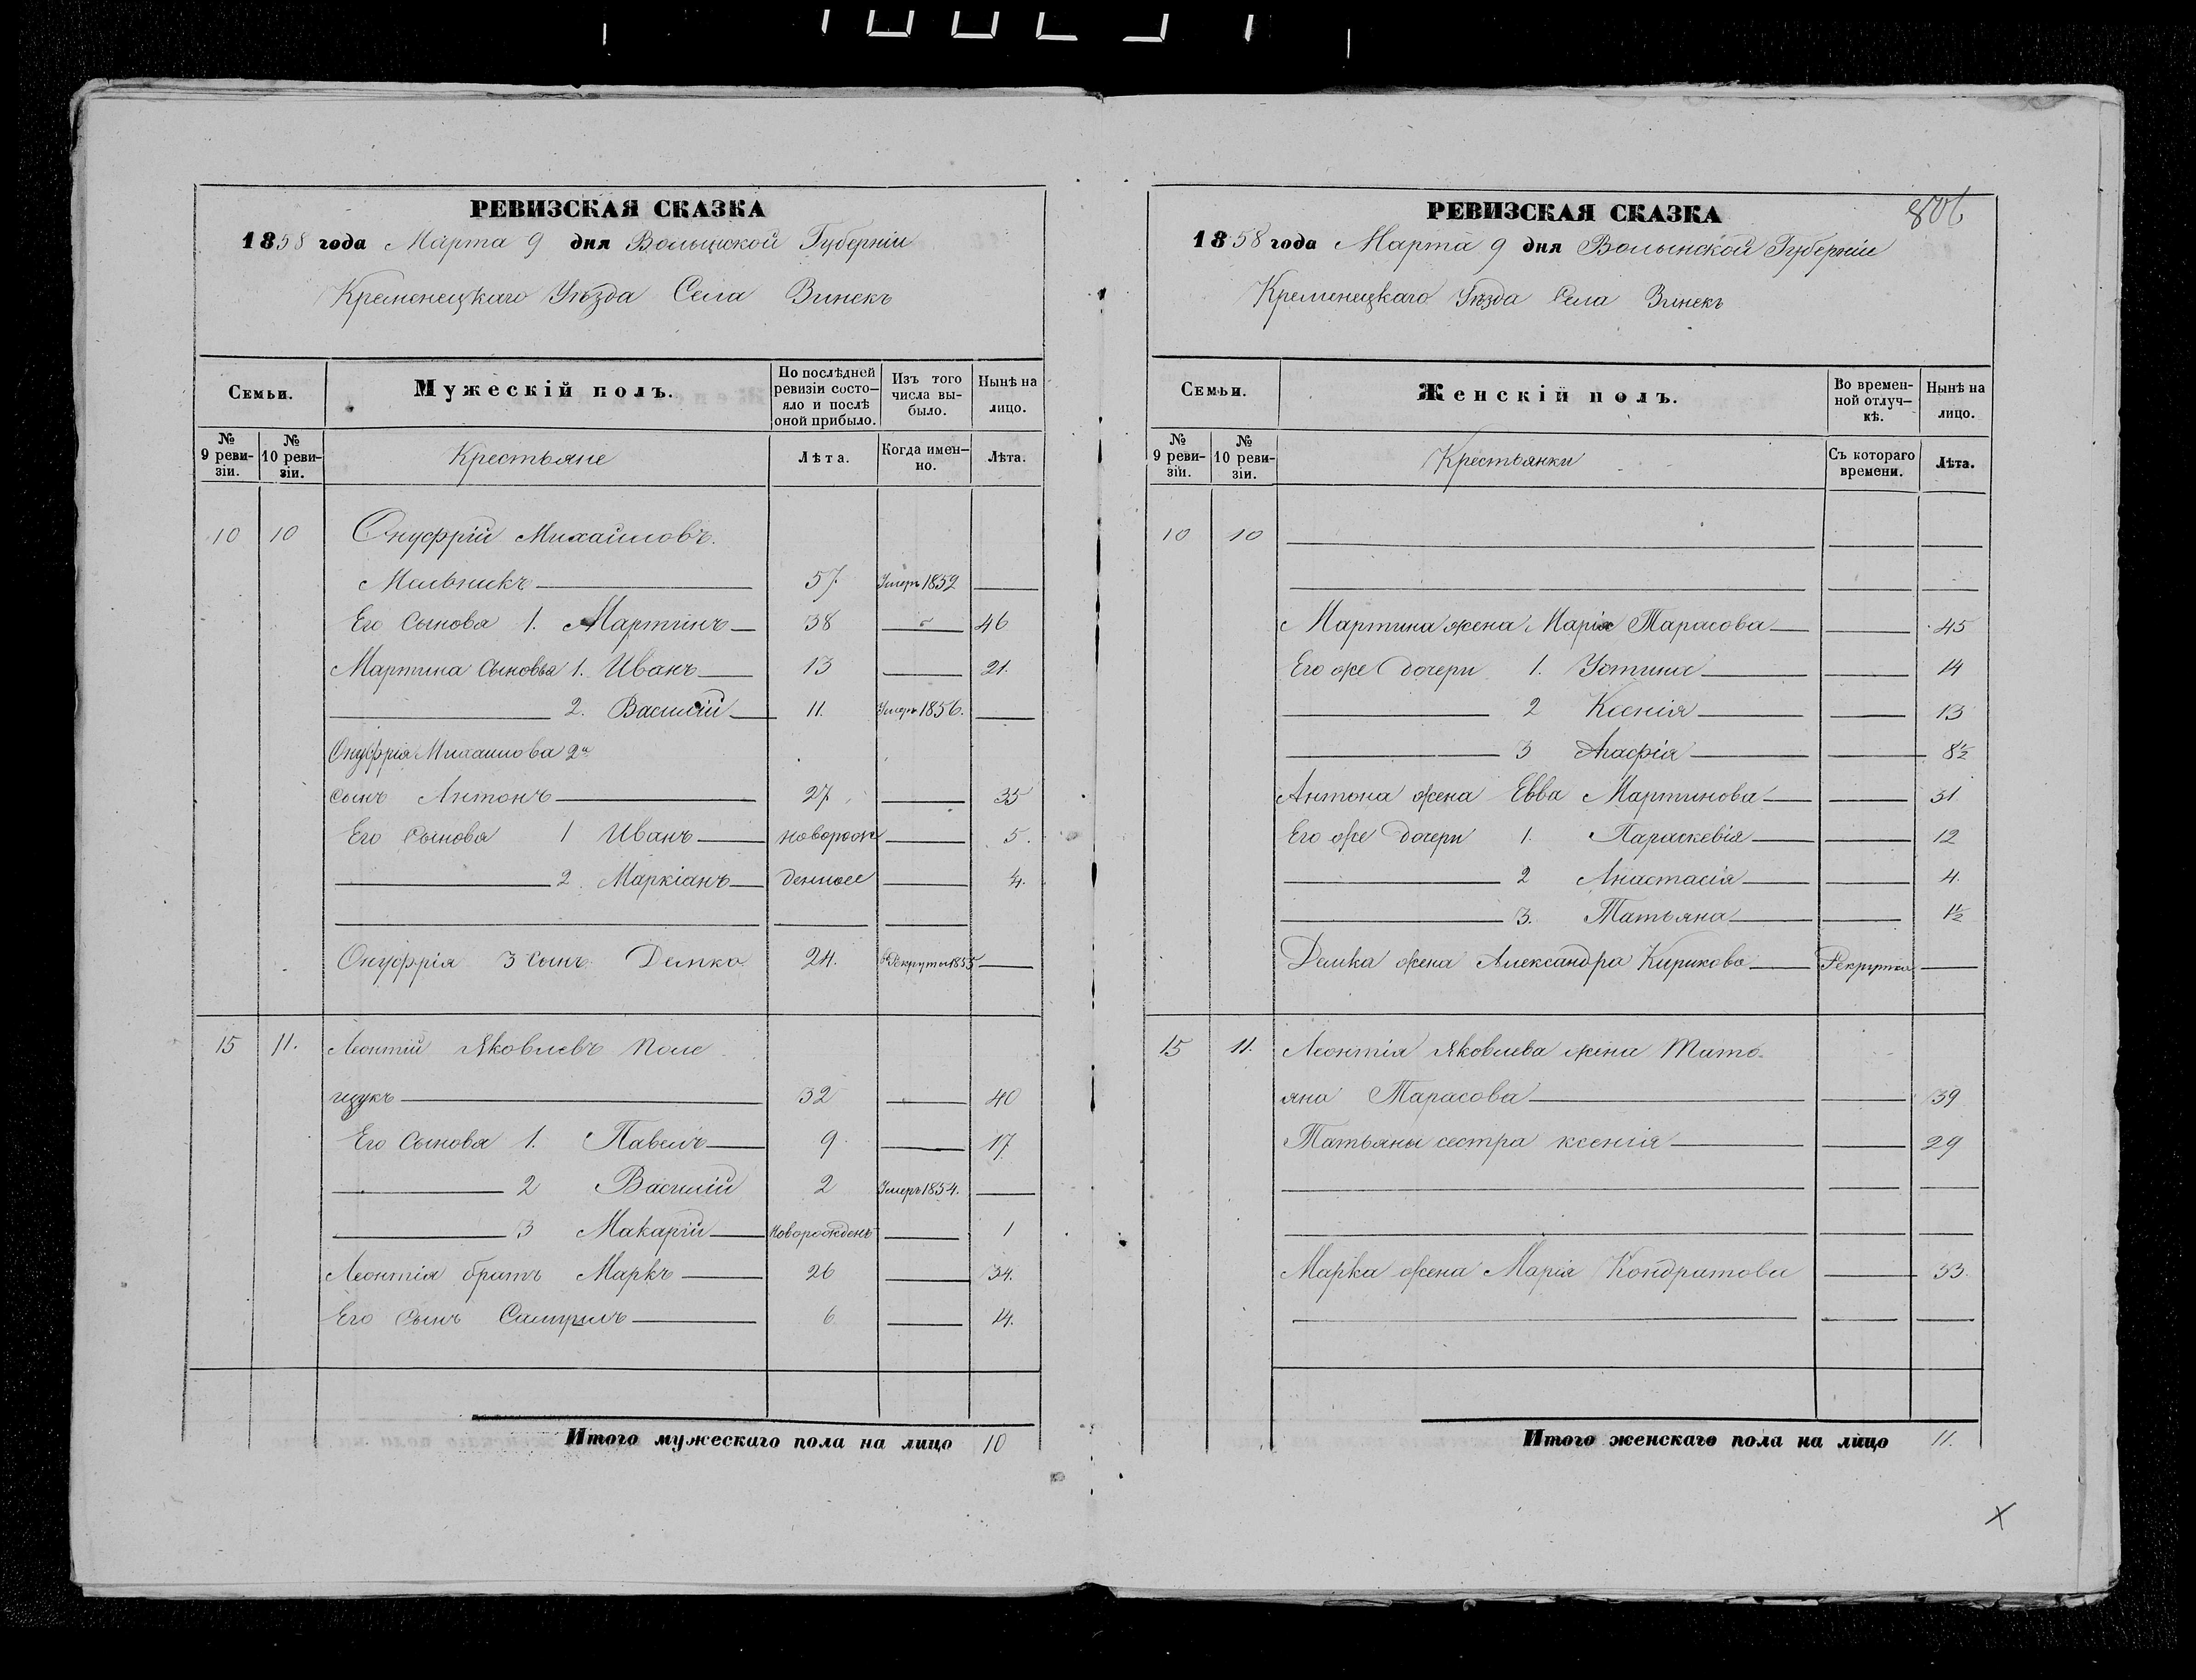 РЕВИЗСКАЯ СКАЗКА
1858 года Марта 9 дня Волынской Губерніи
Кременецкаго Уѣзда Села Винскъ
Семьи.
Мужескій полъ.
По послѣдней ревизіи состо-яло и послѣ оной прибыло.
Изъ того числа вы-было.
Нынѣ на лицо.
№ 9 реви-зіи.
№ 10 реви-зіи.
Крестьяне
Лѣта.
Когда имен-но.
Лѣта.
10 10 Онуфрій Михаиловъ
Мельникъ 57 Умеръ 1852
Его Сынова 1. Мартинъ 38 46
Мартина Сыновья 1. Иванъ 13 21.
2. Василій 11. Умеръ 1856.
Онуфрія Михаилова 2й
сынъ Антонъ 27 35
Его Сынова 1 Иванъ новорож 5.
2. Маркіанъ денные 4.
Онуфрія 3 Сынъ Демко 24. въ Рекруты 1855
15 11. Леонтій Яковлевъ Поле
щукъ 32 40
Его Сынова 1. Павелъ 9 17
2 Василій 2 Умеръ 1854.
3 Макарій Новорожденъ 1
Леонтія братъ Маркъ 26 34.
Его Сынъ Самуилъ 6 14.
Итого мужескаго пола на лицо 10
806
РЕВИЗСКАЯ СКАЗКА
1858 года Марта 9 дня Волынской Губерніи
Кременецкаго Уѣзда Села Винскъ
Семьи.
Женскій полъ.
Во времен-ной отлуч-кѣ.
Нынѣ на лицо.
№ 9 реви-зіи.
№ 10 реви-зіи.
Крестьянки
Съ котораго времени.
Лѣта.
10 10
Мартина жена Марія Тарасова 45
Его же дочери 1. Устина 14
2 Ксенія 13
3 Агафія 8½
Антона жена Евва Мартинова 31
Его же дочери 1. Параскевія 12
2 Анастасія 4.
3. Татьяна 1½
Демка жена Александра Кирикова Рекрутка
15 11. Леонтія Яковлева жена Тать-
яна Тарасова 39
Татьяны сестра ксенія 29
Марка жена Марія Кондратова 33.
Итого женскаго пола на лицо 11.